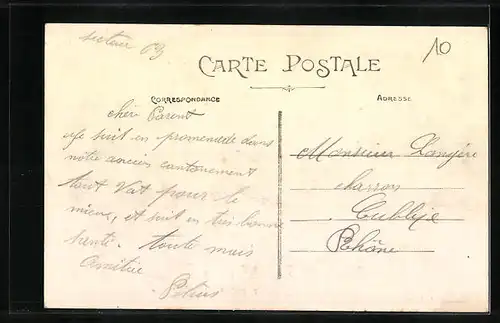 secteur 63
10
CARTE POSTALE
CORRESPONDANCE
ADRESSE
cher Parent
Je suit en promenade dans
notre ancien cantonnement
tout Vat pour le
mieux, et suit en très bonne
sente. toute mais
Amitue
Monsieur Langère
charron
Cublize
Rhône